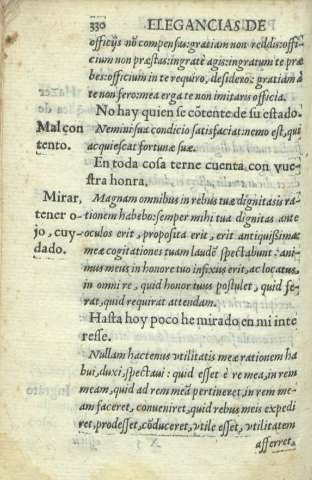 330 ELEGANCIAS DE
officijs nō compensas: gratiam non reddis: offi-
cium non præstas: ingratè agis: ingratum te præ
bes: officium in te requiro, desidero: gratiam à
te non fero: mea erga te non imitaris officia.
No hay quien se cōtente de su estado.
Mal con
tento.
Nemini sua condicio satisfacit: nemo est, qui
acquiescat fortunæ suæ.
En toda cosa terne cuenta con vue-
stra honra.
Mirar,
tener o-
jo, cuy-
dado.
Magnam omnibus in rebus tuæ dignitatis ra-
tionem habebo: semper mihi tua dignitas ante
oculos erit, proposita erit, erit antiquissima:
meæ cogitationes tuam laudē spectabunt: ani-
mus meus in honore tuo infixus erit, ac locatus,
in omni re, quid honor tuus postulet, quid fe-
rat, quid requirat attendam.
Hasta hoy poco he mirado en mi inte
resse.
Nullam hactenus vtilitatis meæ rationem ha
bui, duxi, spectaui: quid esset è re mea, in rem
meam, quid ad rem meā pertineret, in rem me-
am faceret, conueniret, quid rebus meis expedi
ret, prodesset, cōduceret, vtile esset, vtilitatem
afferret,